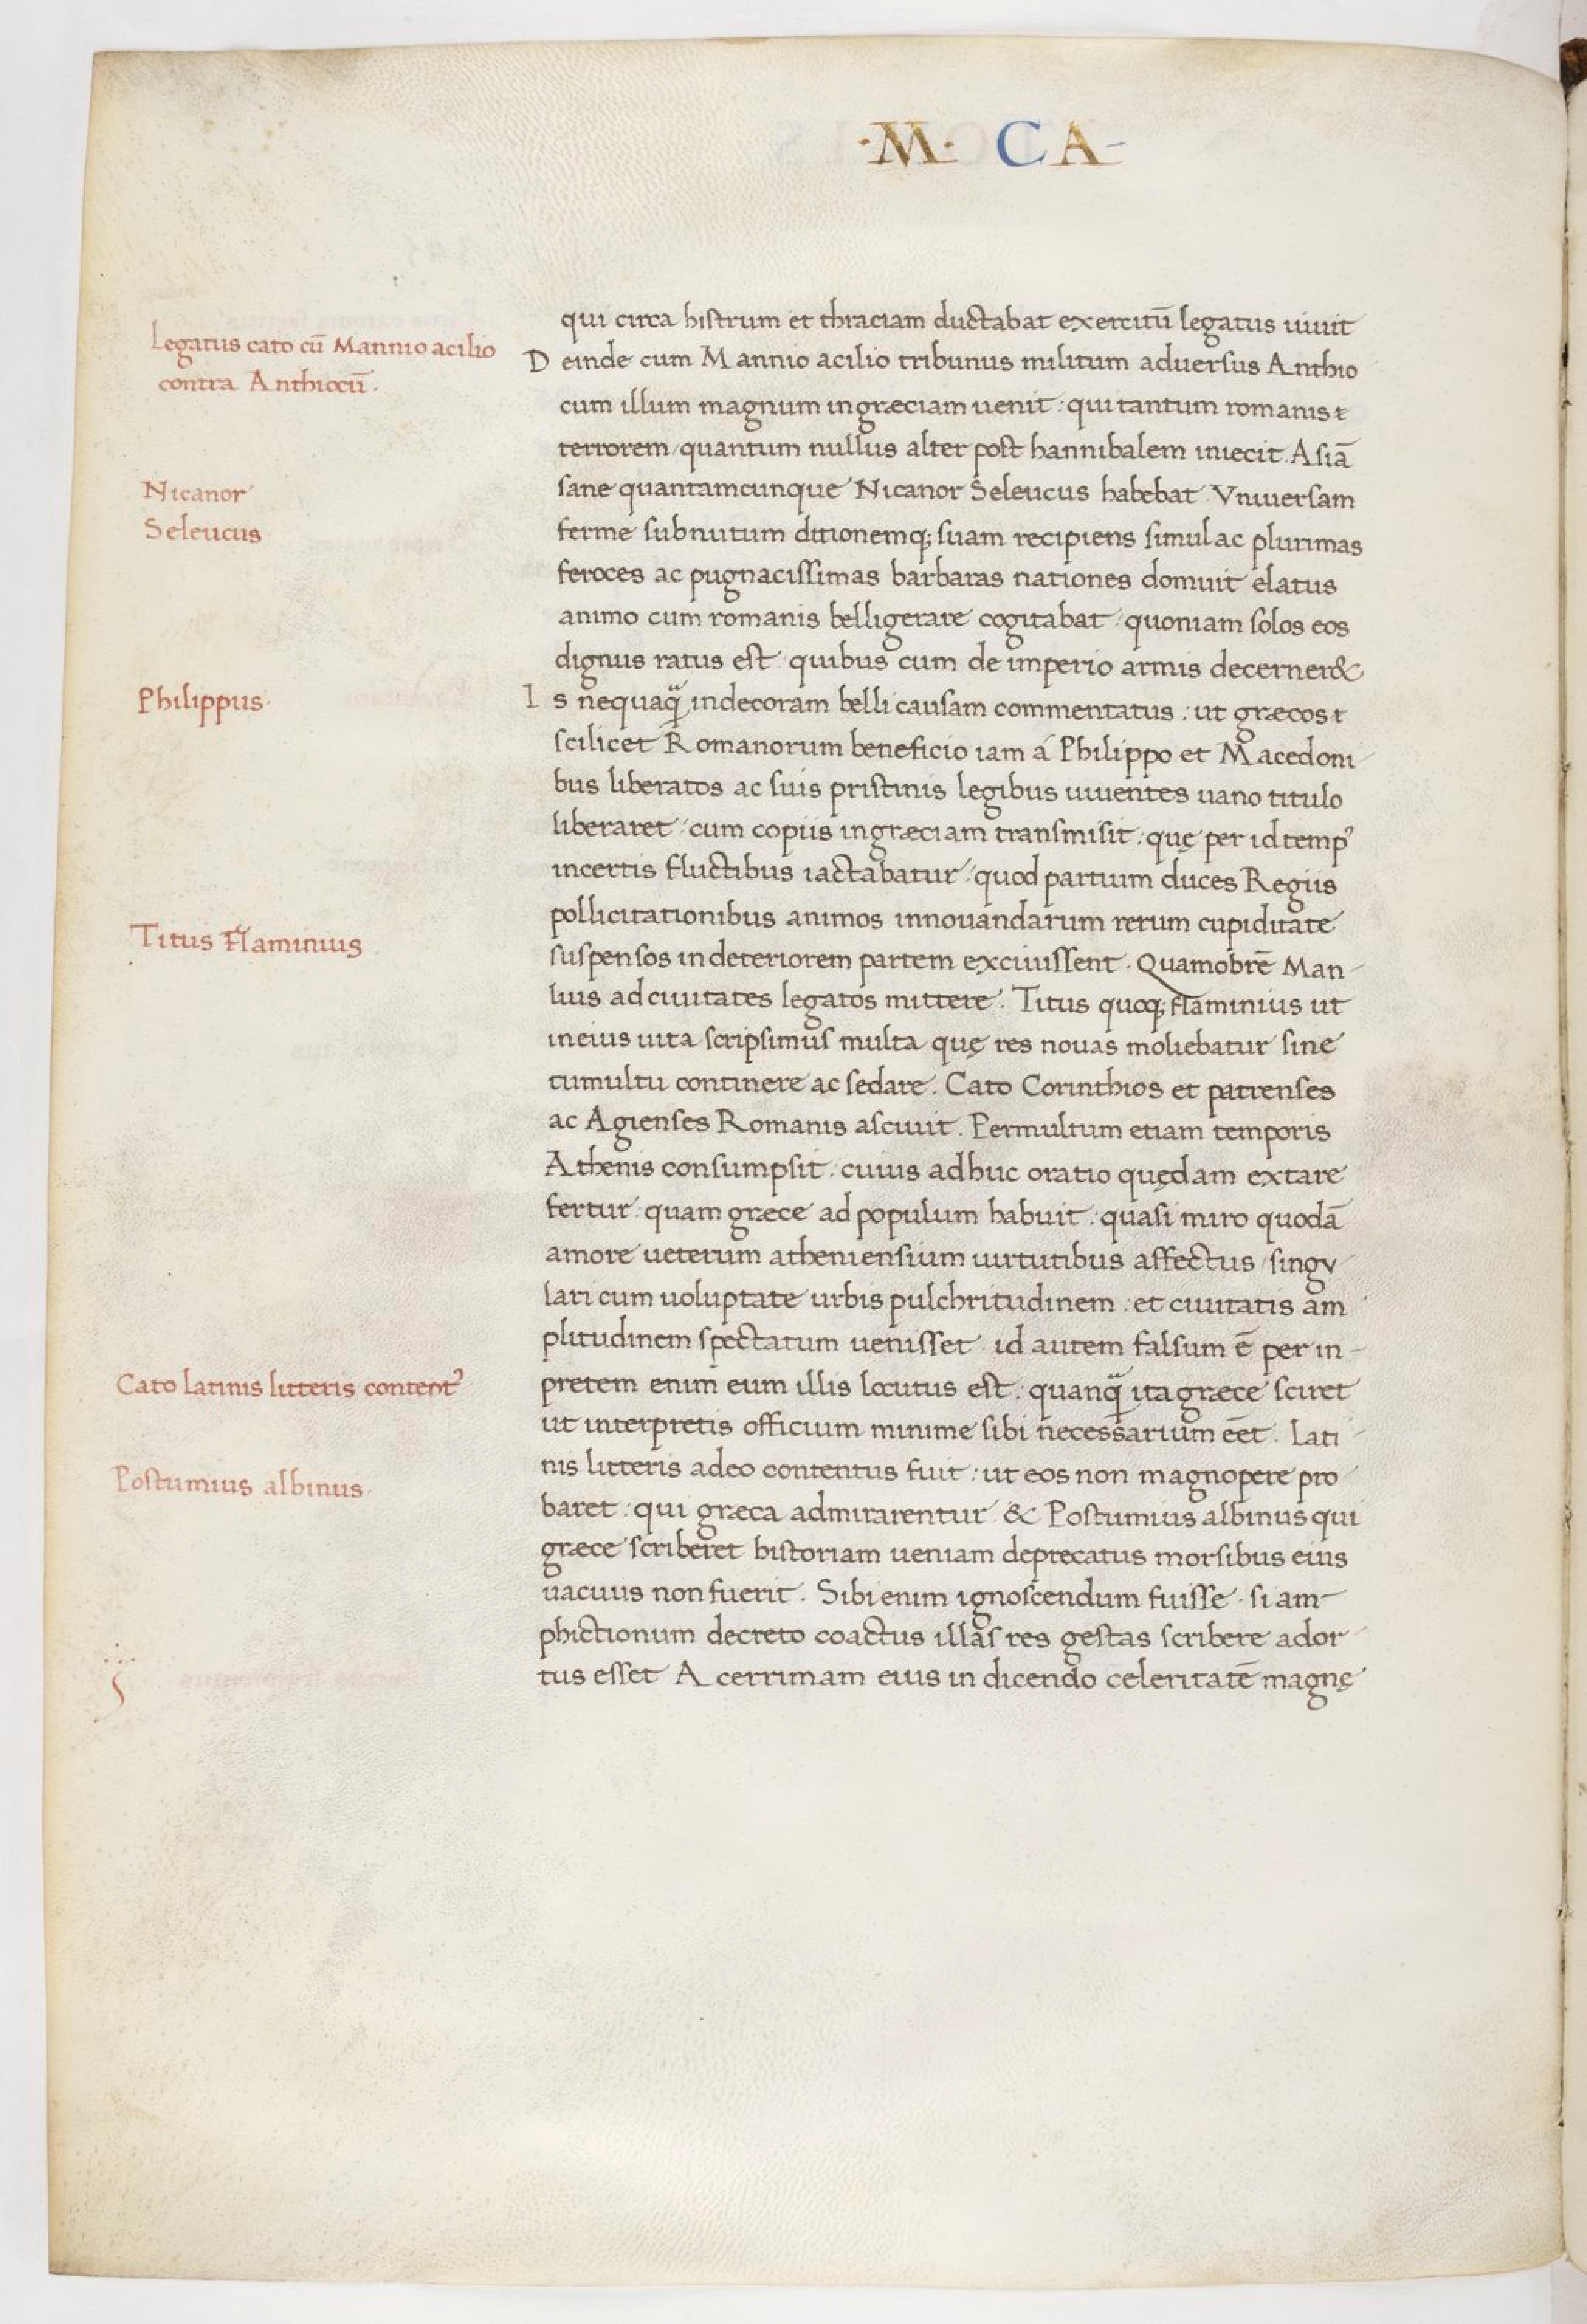 ·M· CA-
Legatus cato cū Mannio acilio
contra Anthiocū.
Nicanor
Seleucus
Philippus.
Titus Flaminius
Cato latinis litteris content᾽
Postumius albinus
qui circa histrum et thraciam ductabat exercitū legatus uiuit
Deinde cum Mannio acilio tribunus militum aduersus Anthio
cum illum magnum in græciam uenit: qui tantum romanis
terrorem / quantum nullus alter post hannibalem iniecit. Asiā
sane quantamcunque Nicanor Seleucus habebat Vniuersam
ferme sub nutum ditionemq; suam recipiens simul ac plurimas
feroces ac pugnacissimas barbaras nationes domuit elatus
animo cum romanis belligerare cogitabat: quoniam solos eos
dignus ratus est quibus cum de imperio armis decerner&
Is nequaq̄ indecoram belli causam commentatus: ut græcos
scilicet Romanorum beneficio iam á Philippo et Macedoni-
bus liberatos ac suis pristinis legibus uiuentes uano titulo
liberaret: cum copiis in græciam transmisit: quę per id temp᾽
incertis fluctibus iactabatur: quod partium duces Regiis
pollicitationibus animos innouandarum rerum cupiditate
suspensos in deteriorem partem exciuissent. Quamobrē Man-
lius ad ciuitates legatos mittere. Titus quoq; flaminius ut
in eius uita scripsimus multa quę res nouas moliebatur sine
tumultu continere ac sedare. Cato Corinthios et patrenses
ac Agienses Romanis asciuit. Permultum etiam temporis
Athenis consumpsit: cuius adhuc oratio quędam extare
fertur: quam græce ad populum habuit: quasi miro quodā
amore ueterum atheniensium uirtutibus affectus / singu-
lari cum uoluptate urbis pulchritudinem: et ciuitatis am
plitudinem spectatum uenisset id autem falsum ē per in-
pretem enim eum illis locutus est: quanq̄ ita græce sciret
ut interpretis officium minime sibi necessarium eēt. Lati-
nis litteris adeo contentus fuit: ut eos non magnopere pro-
baret: qui græca admirarentur & Postumius albinus qui
græce scriberet historiam ueniam deprecatus morsibus eius
uacuus non fuerit. Sibi enim ignoscendum fuisse. si am-
phictionum decreto coactus illas res gestas scribere ador-
tus esset Acerrimam eius in dicendo celeritatē magnę